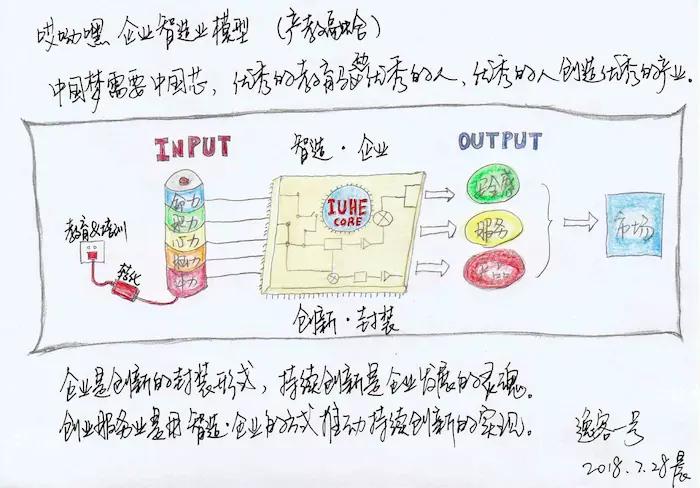 哎呦嘿 企业智造业模型 (产教融合)
中国梦需要中国芯, 优秀的教育孕育优秀的人, 优秀的人创造优秀的产业.
INPUT
智造·企业
OUTPUT
智力
心力
教育&培训
转化
IUHE
CORE
服务
产品
市场
创新·封装
企业是创新的封装形式, 持续创新是企业发展的灵魂。
创业服务业是用智造·企业的方式推动持续创新的实现。
逸客一号
2018.7.28晨